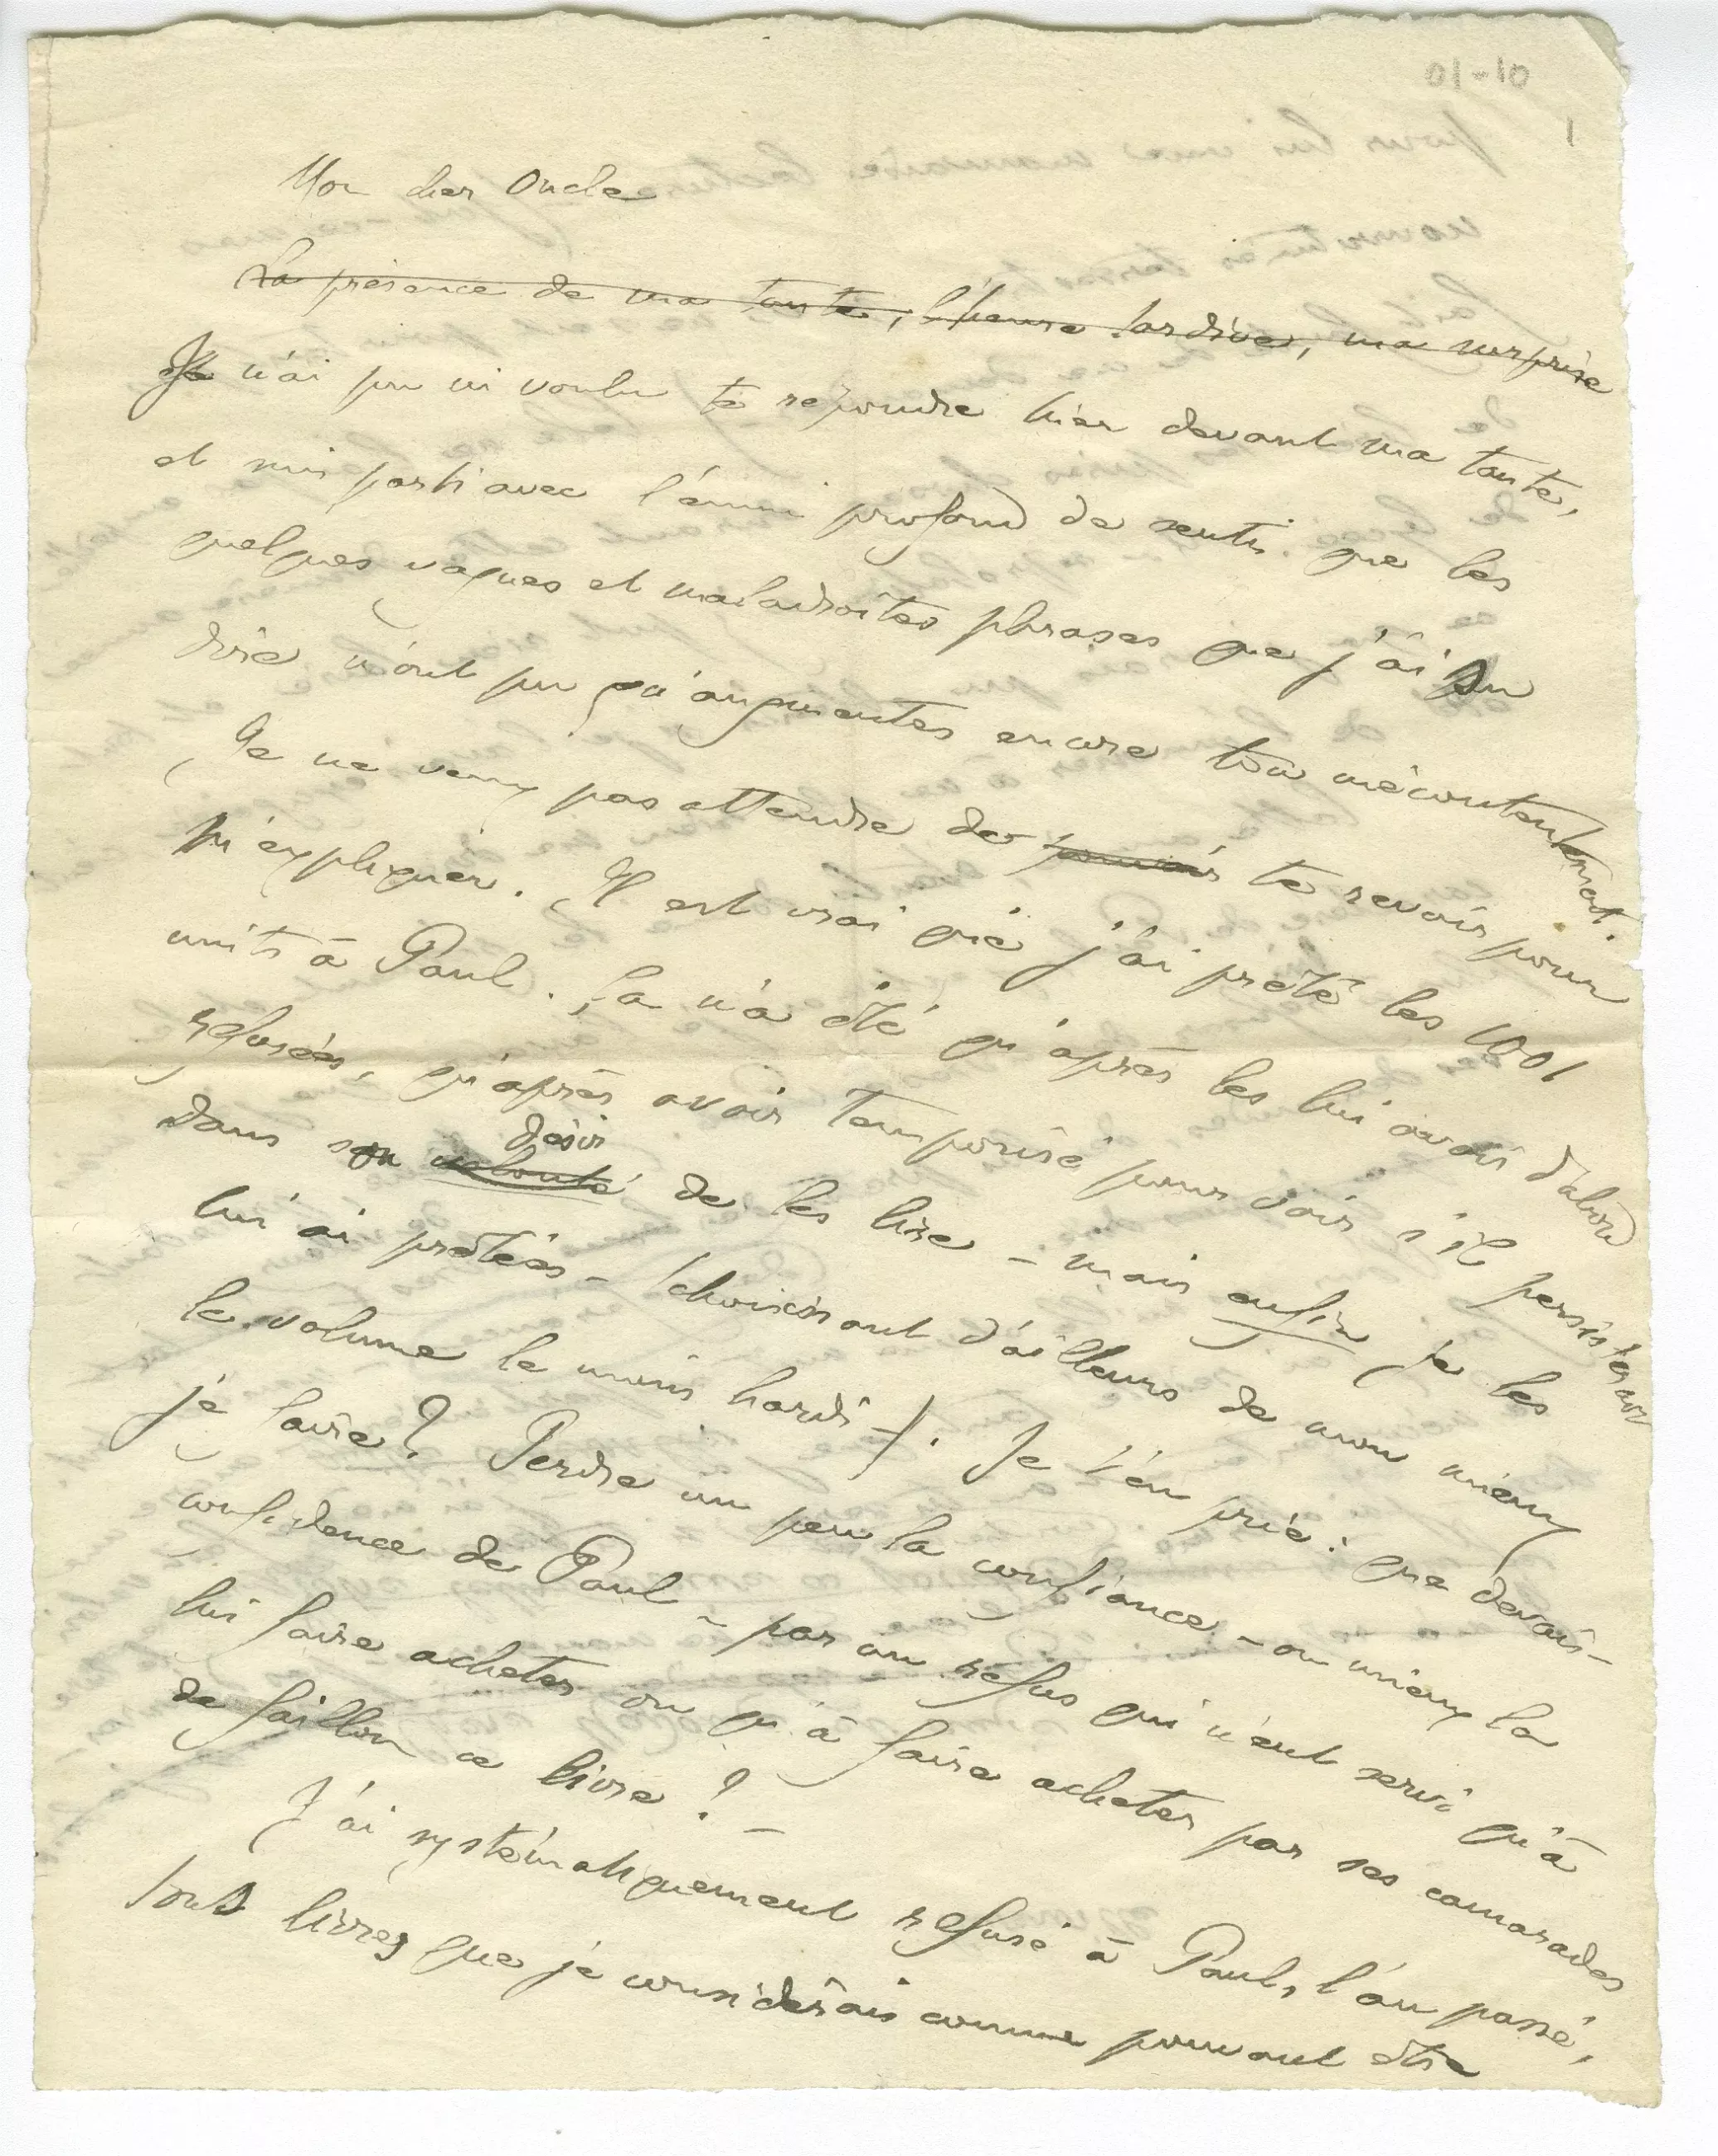 Mon cher Oncle
La présence de ma tante, l'heure tardive, ma surprise
Je n'ai pu ni voulu te répondre hier devant ma tante,
et suis parti avec l'ennui profond de sentir que les
quelques vagues et maladroites phrases que j'ai su
dire n'ont pu qu'augmenter encore ton mécontentement.
Je ne veux pas attendre de pouvoir te revoir pour
m'expliquer. Il est vrai que j'ai prêté les 1001
nuits à Paul. Ça n'a été qu'après les lui avoir d'abord
refusées, qu'après avoir temporisé pour voir s'il persisterait
désir
dans son volonté de les lire – mais enfin je les
lui ai prêtées – (choisissant d'ailleurs de mon mieux
le volume le moins hardi –). Je t'en prie : que devais-
je faire? Perdre un peu la confiance – ou mieux la
confidence de Paul – par un refus qui n'eut servi qu'à
lui faire acheter ou qu'à faire acheter par ses camarades
de Saillon ce livre? –
J'ai systématiquement refusé à Paul, l'an passé,
tous livres que je considérais comme pouvant être